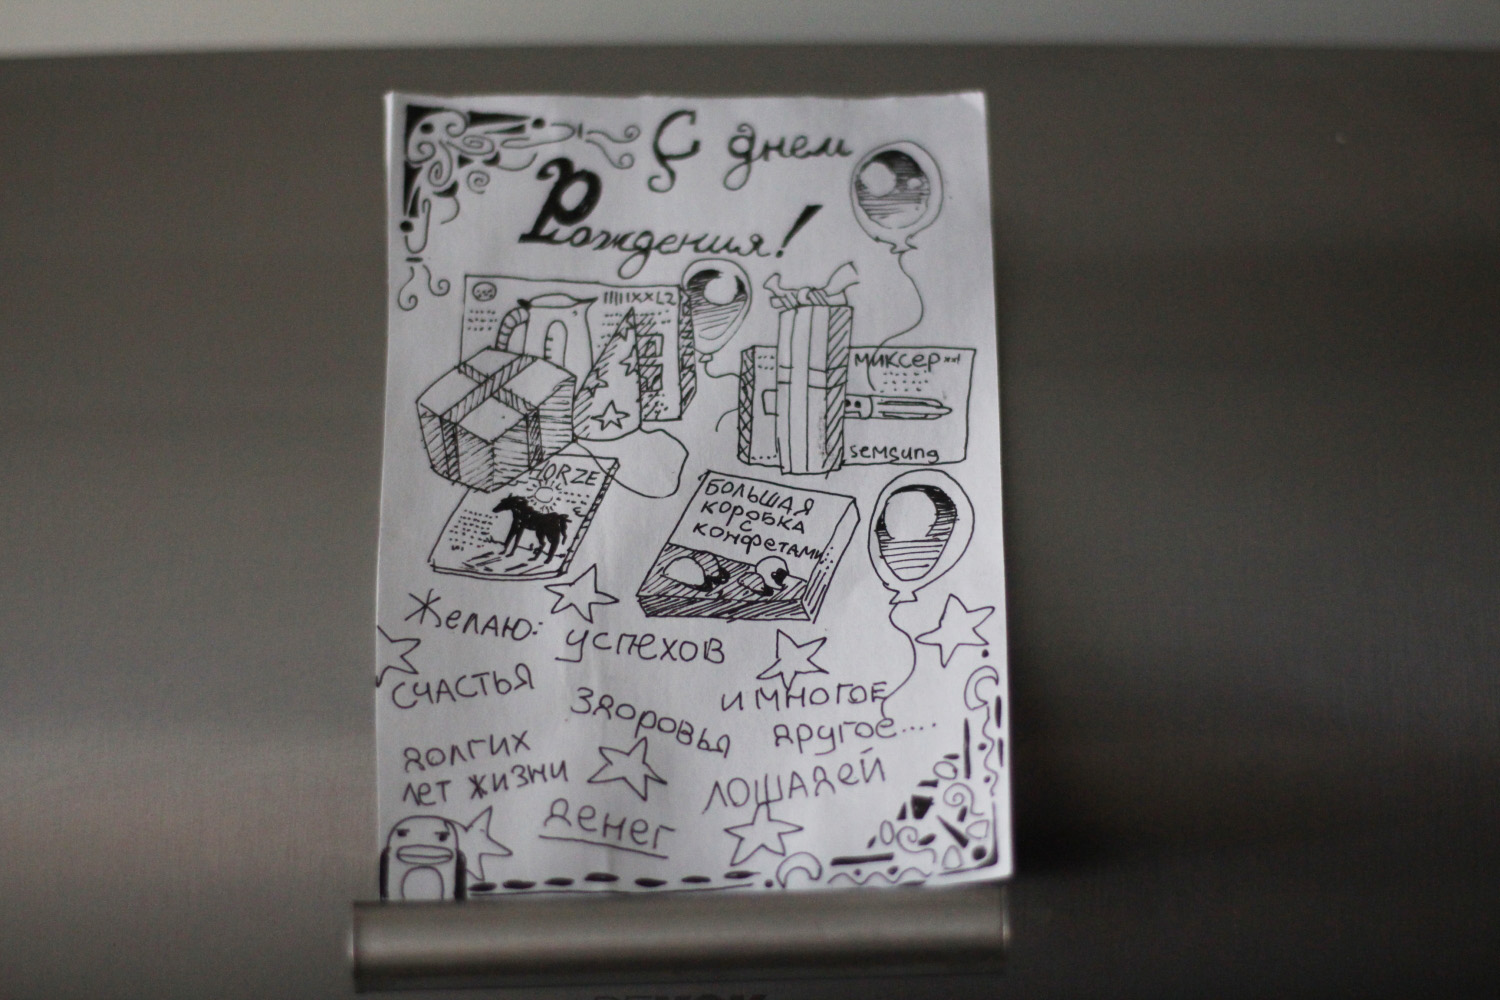 С днем
Рождения!
IIIIIXXL2
МИКСЕР
SEMSUNG
HORZE
БОЛЬШАЯ
КОРОБКА
С
КОНФЕТАМИ
Желаю: успехов
счастья
здоровья
и многое
другое....
долгих
лет жизни
лошадей
денег